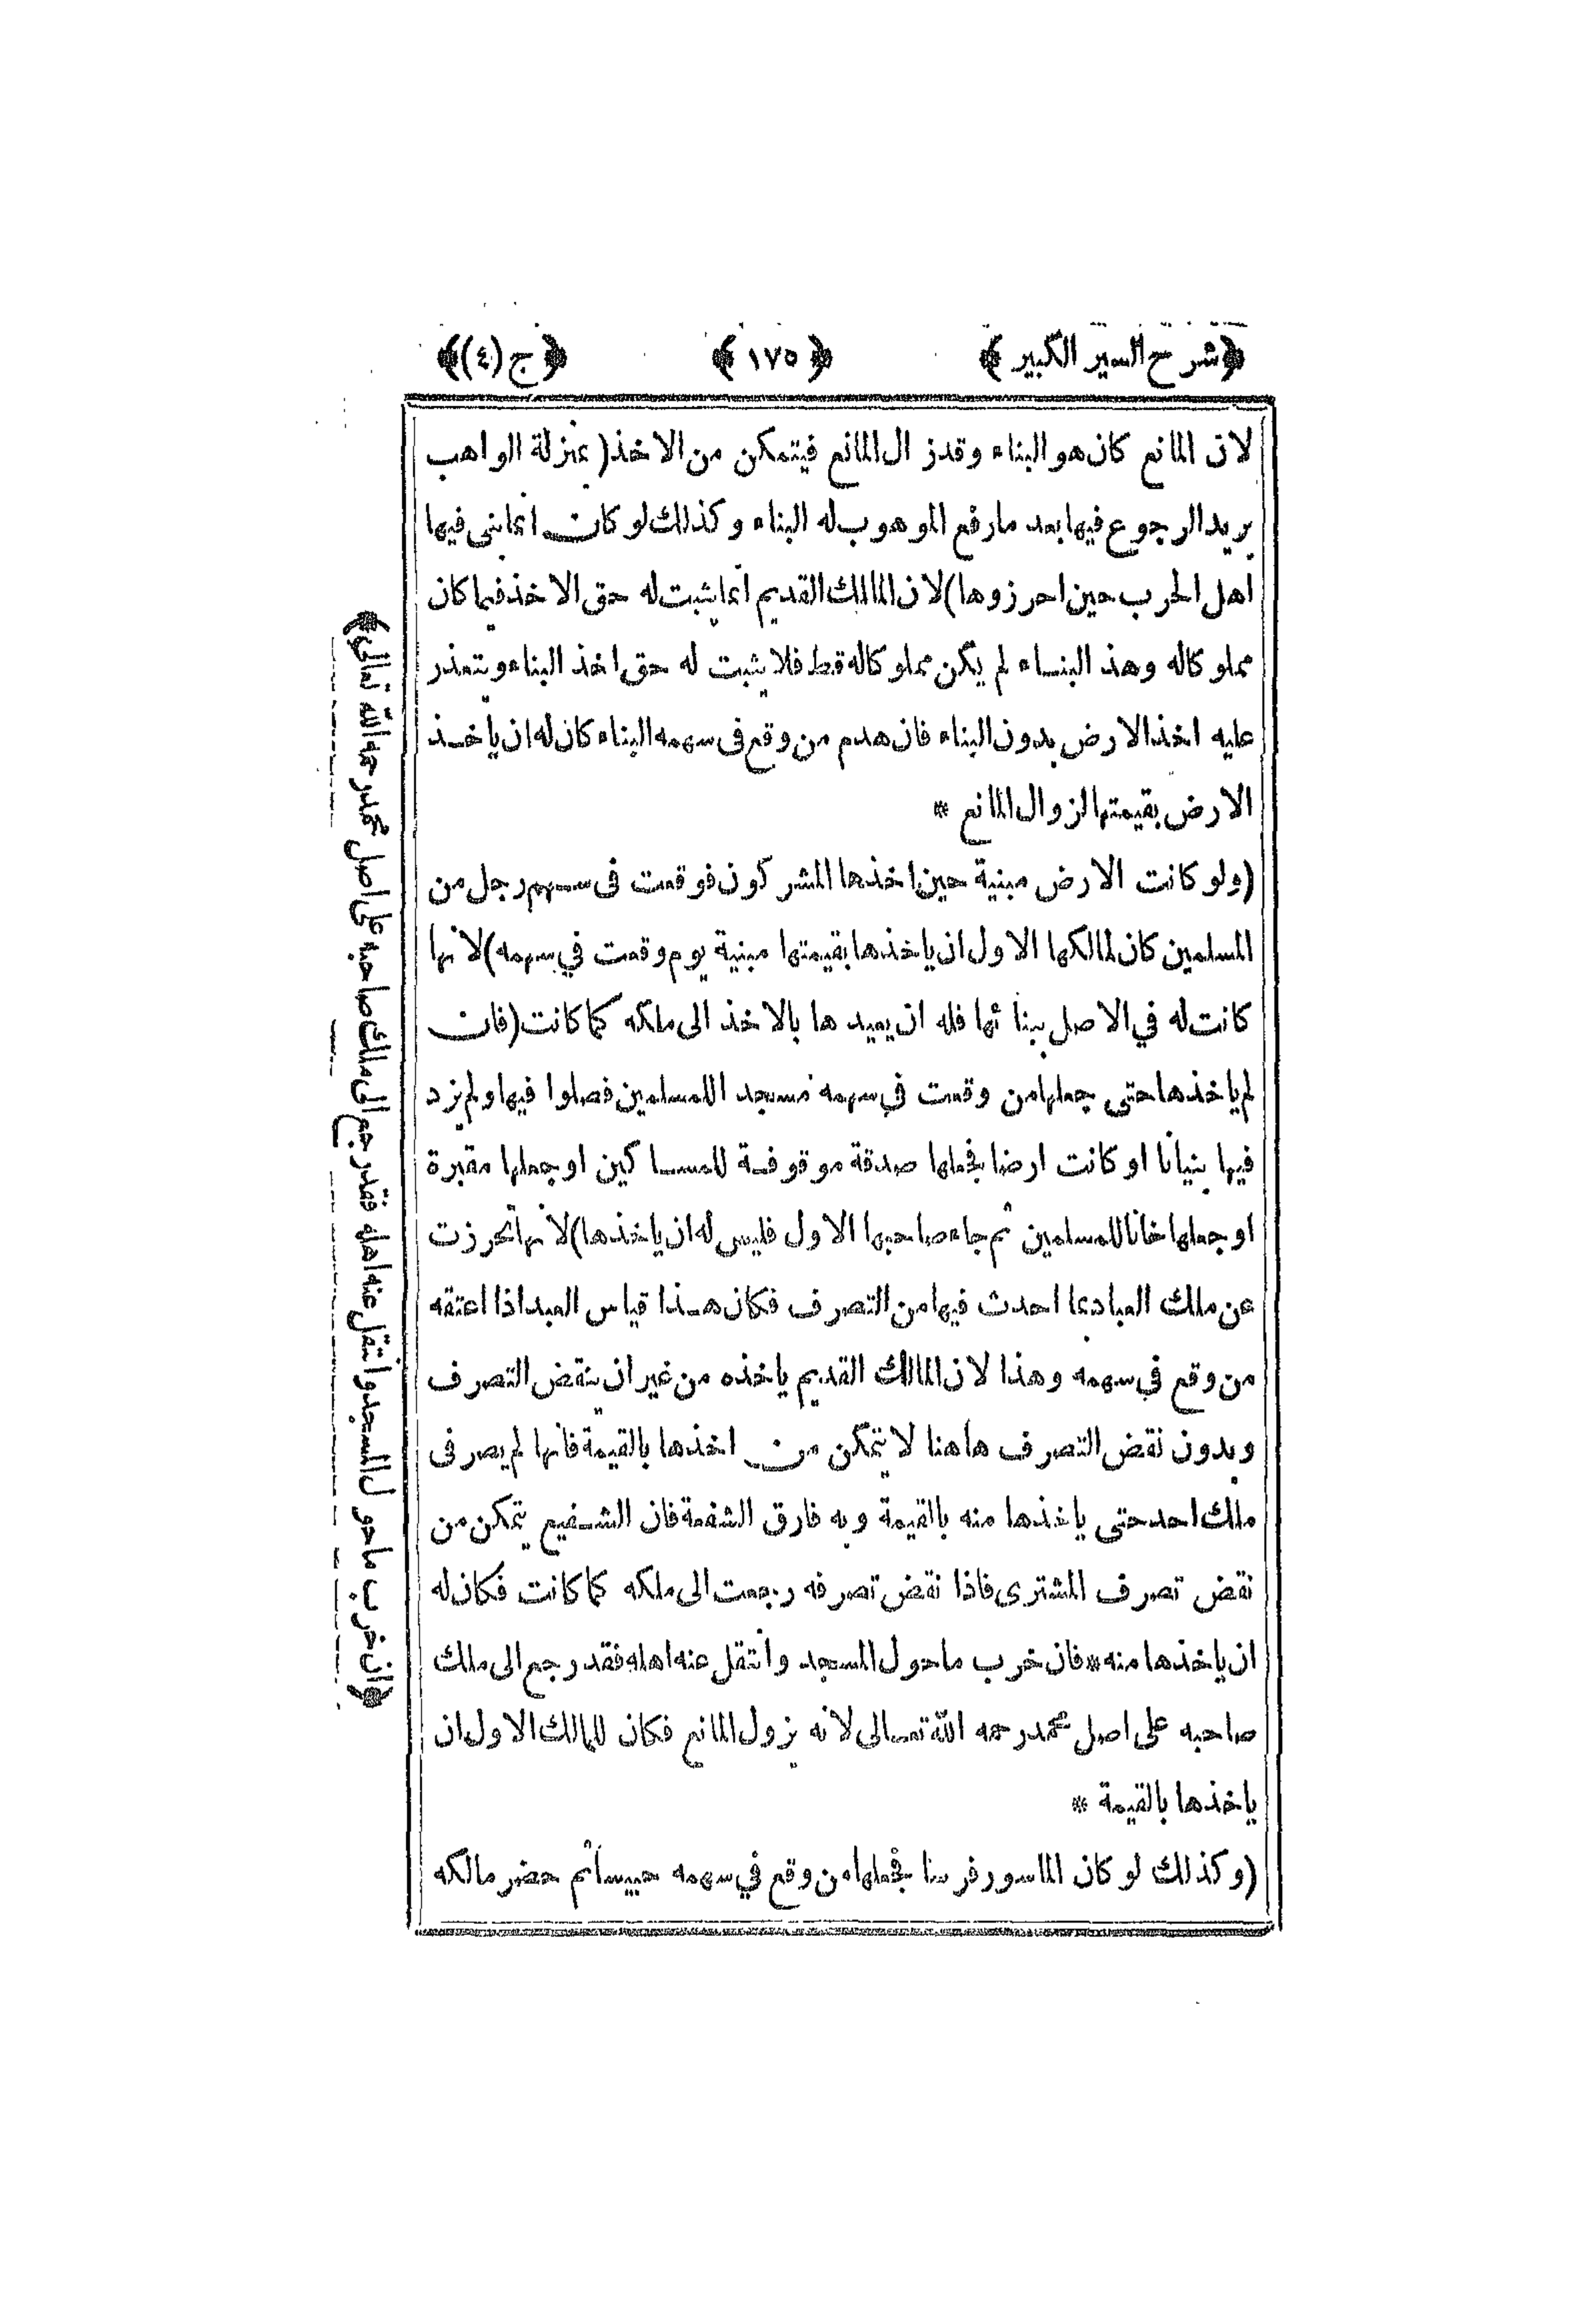 ﴿شرح السير الكبير﴾ ﴿١٧٥﴾ ﴿ج (٤)﴾
لان المانع كان هو البناء وقد زال المانع فيتمكن من الاخذ (بمنزلة الواهب
يريد الرجوع فيها بعد ما رفع الموهوب له البناء وكذلك لو كان انما بنى فيها
اهل الحرب حين احرزوها) لان المالك القديم انما يثبت له حق الاخذ فيما كان
مملوكا له وهذ البناء لم يكن مملوكا له قط فلا يثبت له حق اخذ البناء ويتعذر
عليه اخذ الارض بدون البناء فان هدم من وقع فى سهمه البناء كان له ان ياخذ
الارض بقيمتها لزوال المانع *
(ولو كانت الارض مبنية حين اخذها المشركون فوقعت فى سهم رجل من
المسلمين كان لمالكها الاول ان ياخذها بقيمتها مبنية يوم وقعت في سهمه) لانها
كانت له في الاصل ببنائها فله ان يعيدها بالاخذ الى ملكه كما كانت (فان
لم ياخذها حتى جعلها من وقعت في سهمه مسجد اللمسلمين فصلوا فيها ولم يزد
فيها بنيانا او كانت ارضا فجعلها صدقة موقوفة للمساكين او جعلها مقبرة
او جعلها خانا للمسلمين ثم جاء صاحبها الاول فليس له ان ياخذها) لانها تحرزت
عن ملك العباد بما احدث فيها من التصرف فكان هذا قياس العبد اذا اعتقه
من وقع في سهمه وهذا لان المالك القديم ياخذه من غير ان ينقض التصرف
وبدون نقض التصرف هاهنا لا يتمكن من اخذها بالقيمة فانها لم يصر فى
ملك احد حتى ياخذها منه بالقيمة وبه فارق الشفعة فان الشفيع يتمكن من
نقض تصرف المشترى فاذا نقض تصرفه رجعت الى ملكه كما كانت فكان له
ان ياخذها منه * فان خرب ما حول المسجد وانتقل عنه اهله فقد رجع الى ملك
صاحبه على اصل محمد رحمه الله تعالى لانه يزول المانع فكان للمالك الاول ان
ياخذها بالقيمة *
(وكذلك لو كان الماسور فرسا فجعلها من وقع في سهمه حبيسا ثم حضر مالكه
﴿ان خرب ما حول المسجد وانتقل عنه اهله فقد رجع الى ملك صاحبه على اصل محمد رحمه الله تعالى﴾